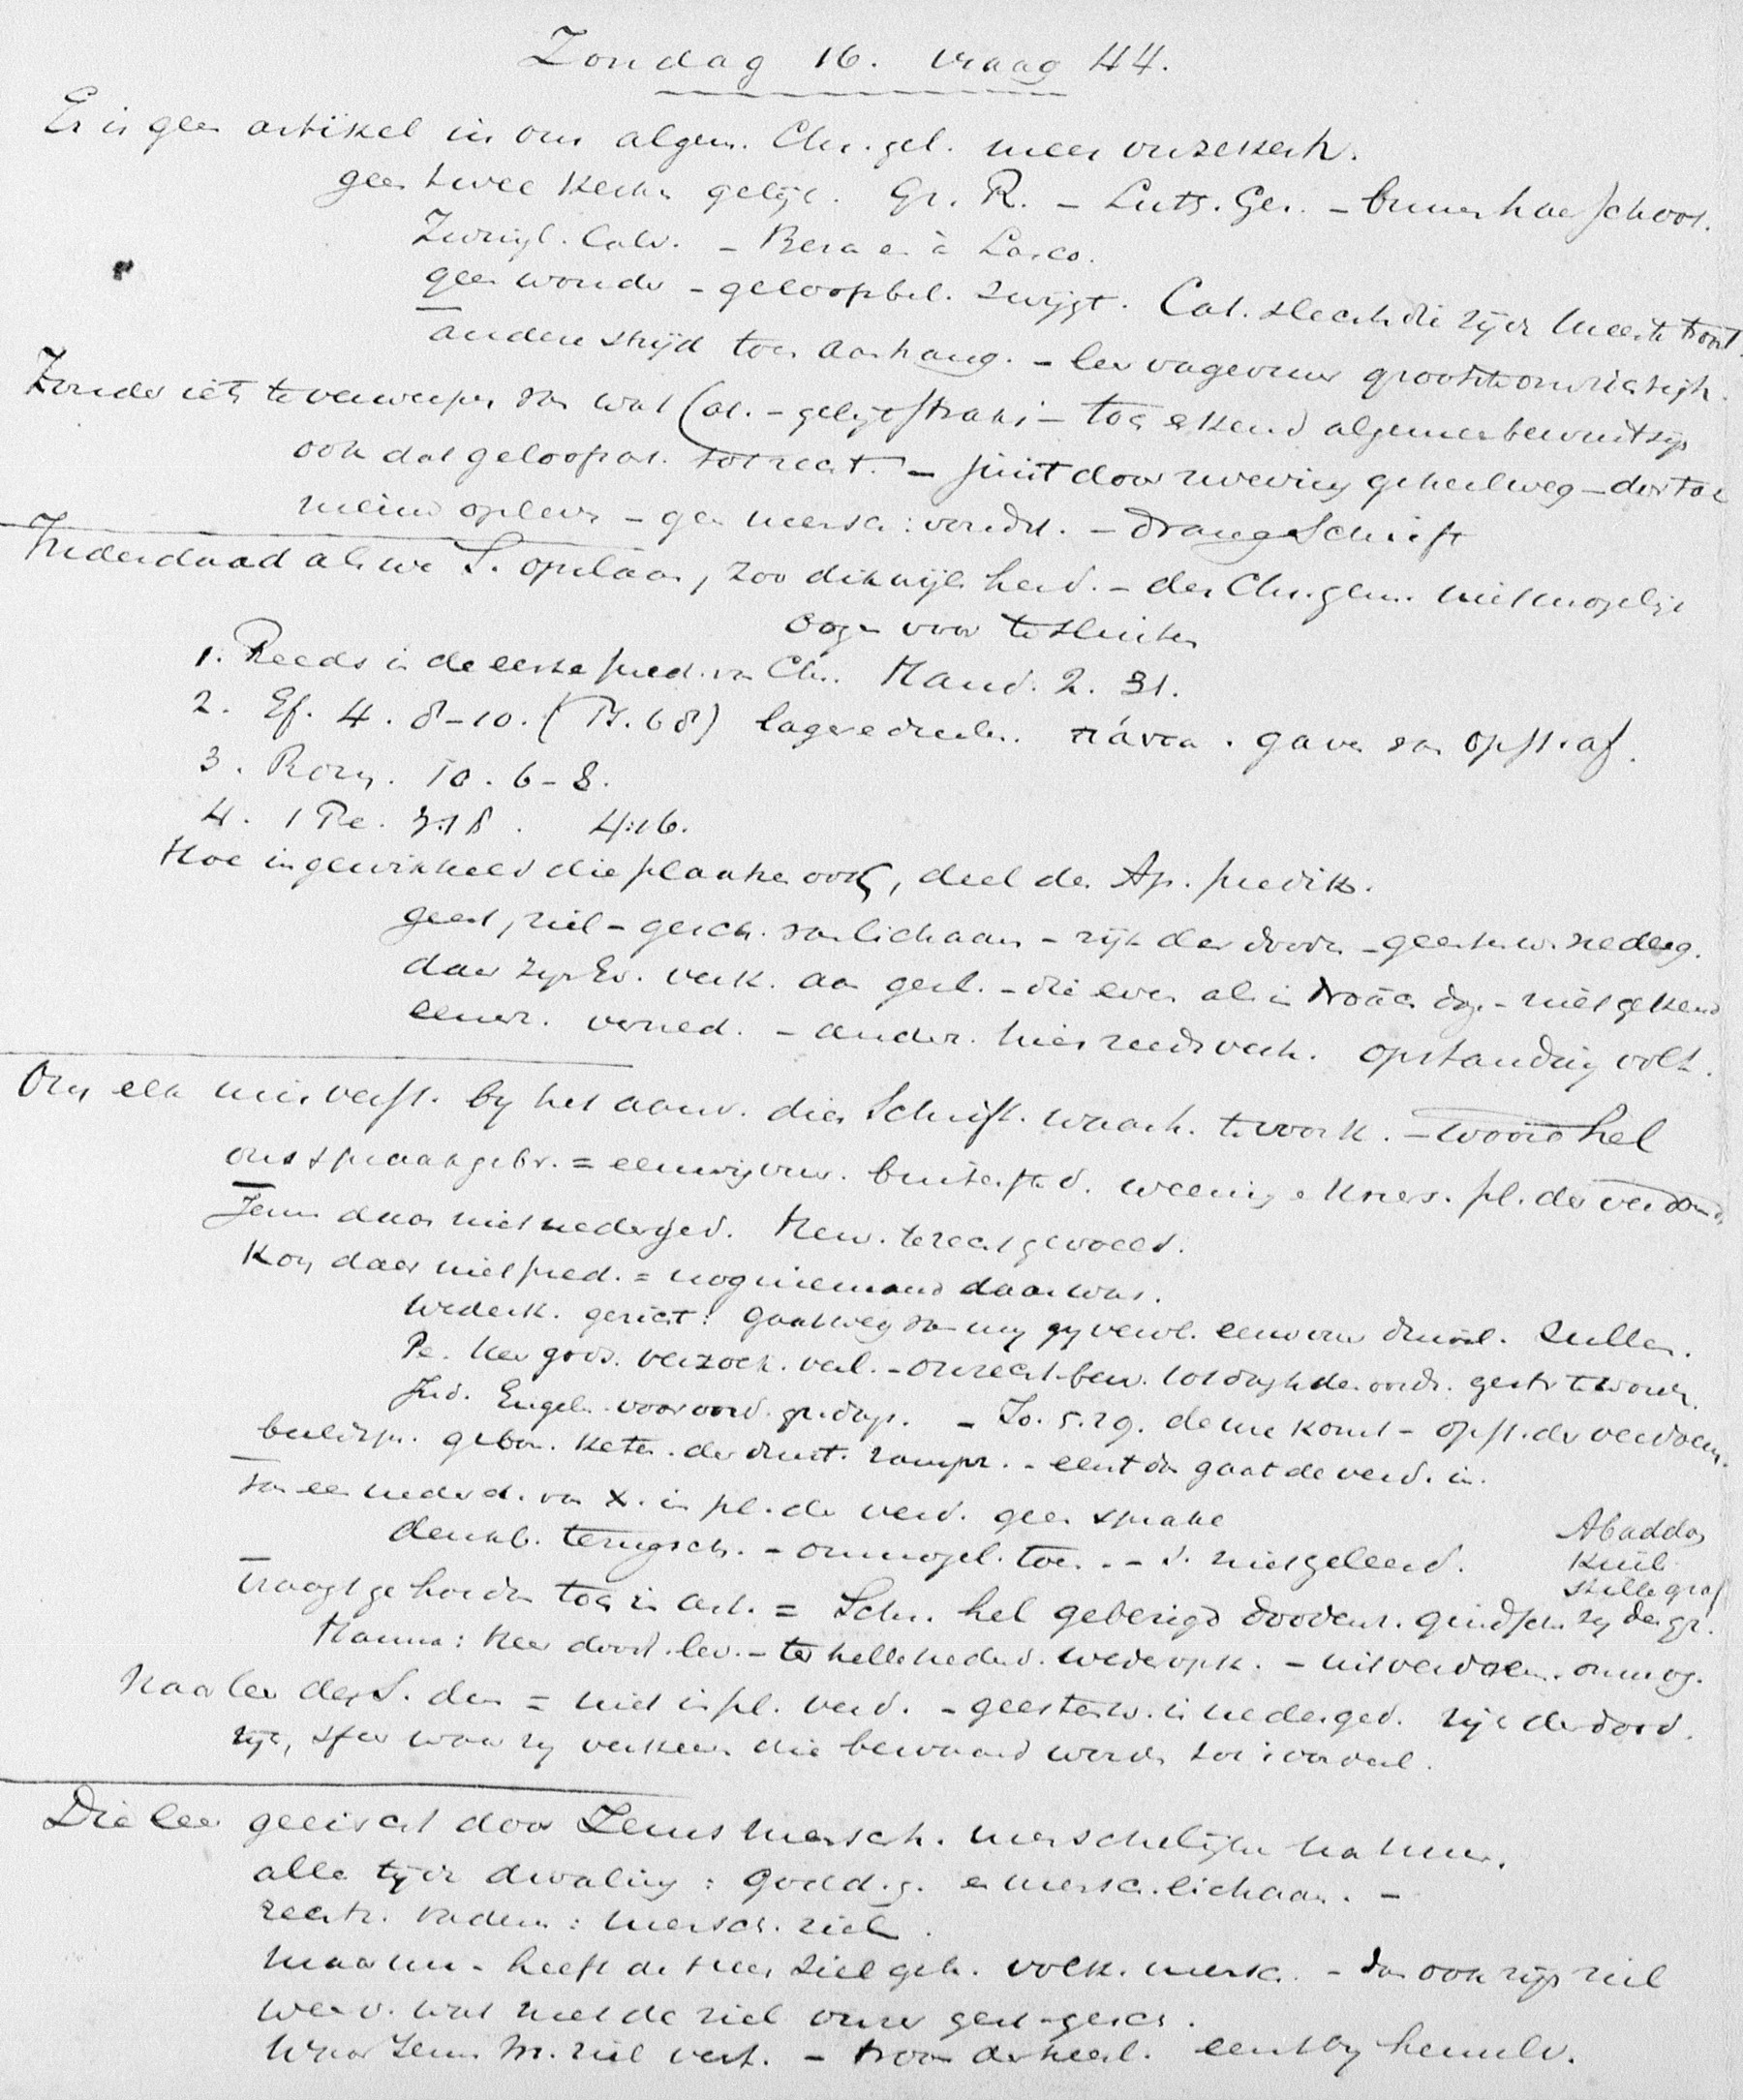 Zondag 16. vraag 44.
Er is geen artikel in ons algem. Chr. gel. meer onzeker.
geen twee kerken gelijk. Gr. R. – Luth. Ger. – binnen haar school.
Zwingl. Calv. – Beza en à Lasco.
geen wonder – geloofsbel. zwijgt. Cat. slechts die zijde meeste troost.
anderen strijd toen aanhang. – leer vagevuur grootste onwichtigh.
Zonder iets te verwerpen van wat Cat. – gelijk straks – toch erkend algemeen bewustzijn
ook dat geloofsar. tot recht. – juist door zweving geheel weg – der toe
nieuw opleven – geen mensch: vereischt. – drang Schrift
Inderdaad als we S. opslaan, zoo dikwijls herd. – den Chr. gem. niet mogelijk
oogen voor te sluiten
1. Reeds in de eerste pred. van Chr. Hand. 2. 31.
2. Ef. 4. 8–10. (Ps. 68) lagere deelen. πάντα. gaven van opst. af.
3. Rom. 10. 6–8.
4. 1 Pe. 3.18. 4:6.
Hoe ingewikkeld die plaatsen ook, deel der Ap. predik.
geest, ziel – gesch. van lichaam – rijk der dooden – geestenw. nederg.
daar zijn Ev. verk. aan geest. – die even als in Noachs dag. – niet gekend
eener. verned. – anderz. hier reeds verh. opstanding volt.
Om elk misverst. bij het aanv. dier Schrift. waarh. te voork. – woord hel
ons spraakgebr. = eeuwig vuur. buitenste d. weening en kners. pl. der verdoemd.
Jezus daar niet nedergd. Men. terecht gevoeld.
Kon daar niet pred. = nog niemand daar was.
Wederk. gericht: gaat weg van mij gij vervl. eeuw. vuur duivel. zullen.
Pe. Heer godz. verzoek. verl. – onrecht. bew. tot dag des oords. gestr. te worden.
Jud. Engelen voor oord. gr. dags. – Jo. 5.29. de ure komt – opst. der verdoem.
beeldspr. gebon. keten. der duist. rampz. – eerst dan gaat de verd. in.
van een nederd. van X. in pl. der verd. geen sprake
denkb. terugsch. – onmogel. toe. – S. niet geleerd.
Abaddon
Kuil
stille graf
Vraagt ge hoe dan toch in art. = Schr. hel gebezigd doodenr.
Hanna: Heer doodt. lev. – ter helle nederd. weder opk. – uit verdoem. onmog.
Naar leer der S. dan = niet in pl. verd. – geestenw. is nedergd. rijk der dood.
rijk, sfeer waar zij verkeeren die bewaard worden tot: oordeel.
Die leer geeischt door Jezus mensch. menschelijke natuur.
alle tijden dwaling: Godd. g. en mensch. lichaam. –
rechtz. vaderen: mensch. ziel.
maar nu – heeft de Heer ziel geh. volk. mensch. – dan ook zijn ziel
werd. wat met de ziel onzer gest. – gesch.
Waar Jezus m. ziel vert. – troon der heerl. eerst bij hemelv.